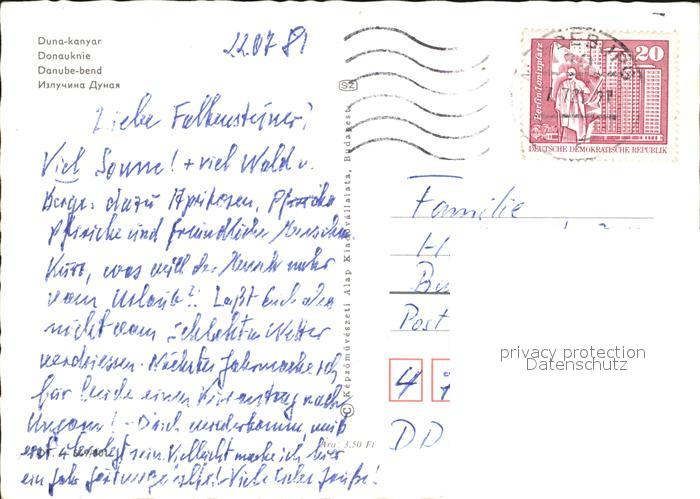 Duna-kanyar
Donauknie
Danube-bend
Излучина Дуная
22.07.81
Liebe Falkensteiner!
Viel Sonne! + viel Wald u.
Berge. dazu Aprikosen,
Pfirsiche und freundliche Menschen
Kurz, was will der Mensch mehr
vom Urlaub?! Laßt Euch also
nicht vom schlechten Wetter
verdriessen. Nächstes Jahr mache ich
für beide einen nach
Ungarn! - Doch wiederkommen will
erst überlegt sein. Vielleicht mache ich hier
ein Jahr Viele liebe Grüße!
SZ
© Képzőművészeti Alap Kiadóvállalata, Budapest
Ára: 3,50 Ft
20
Berlin-Leninplatz
DEUTSCHE DEMOKRATISCHE REPUBLIK
Familie
H
Post
4
DD
privacy protection
Datenschutz